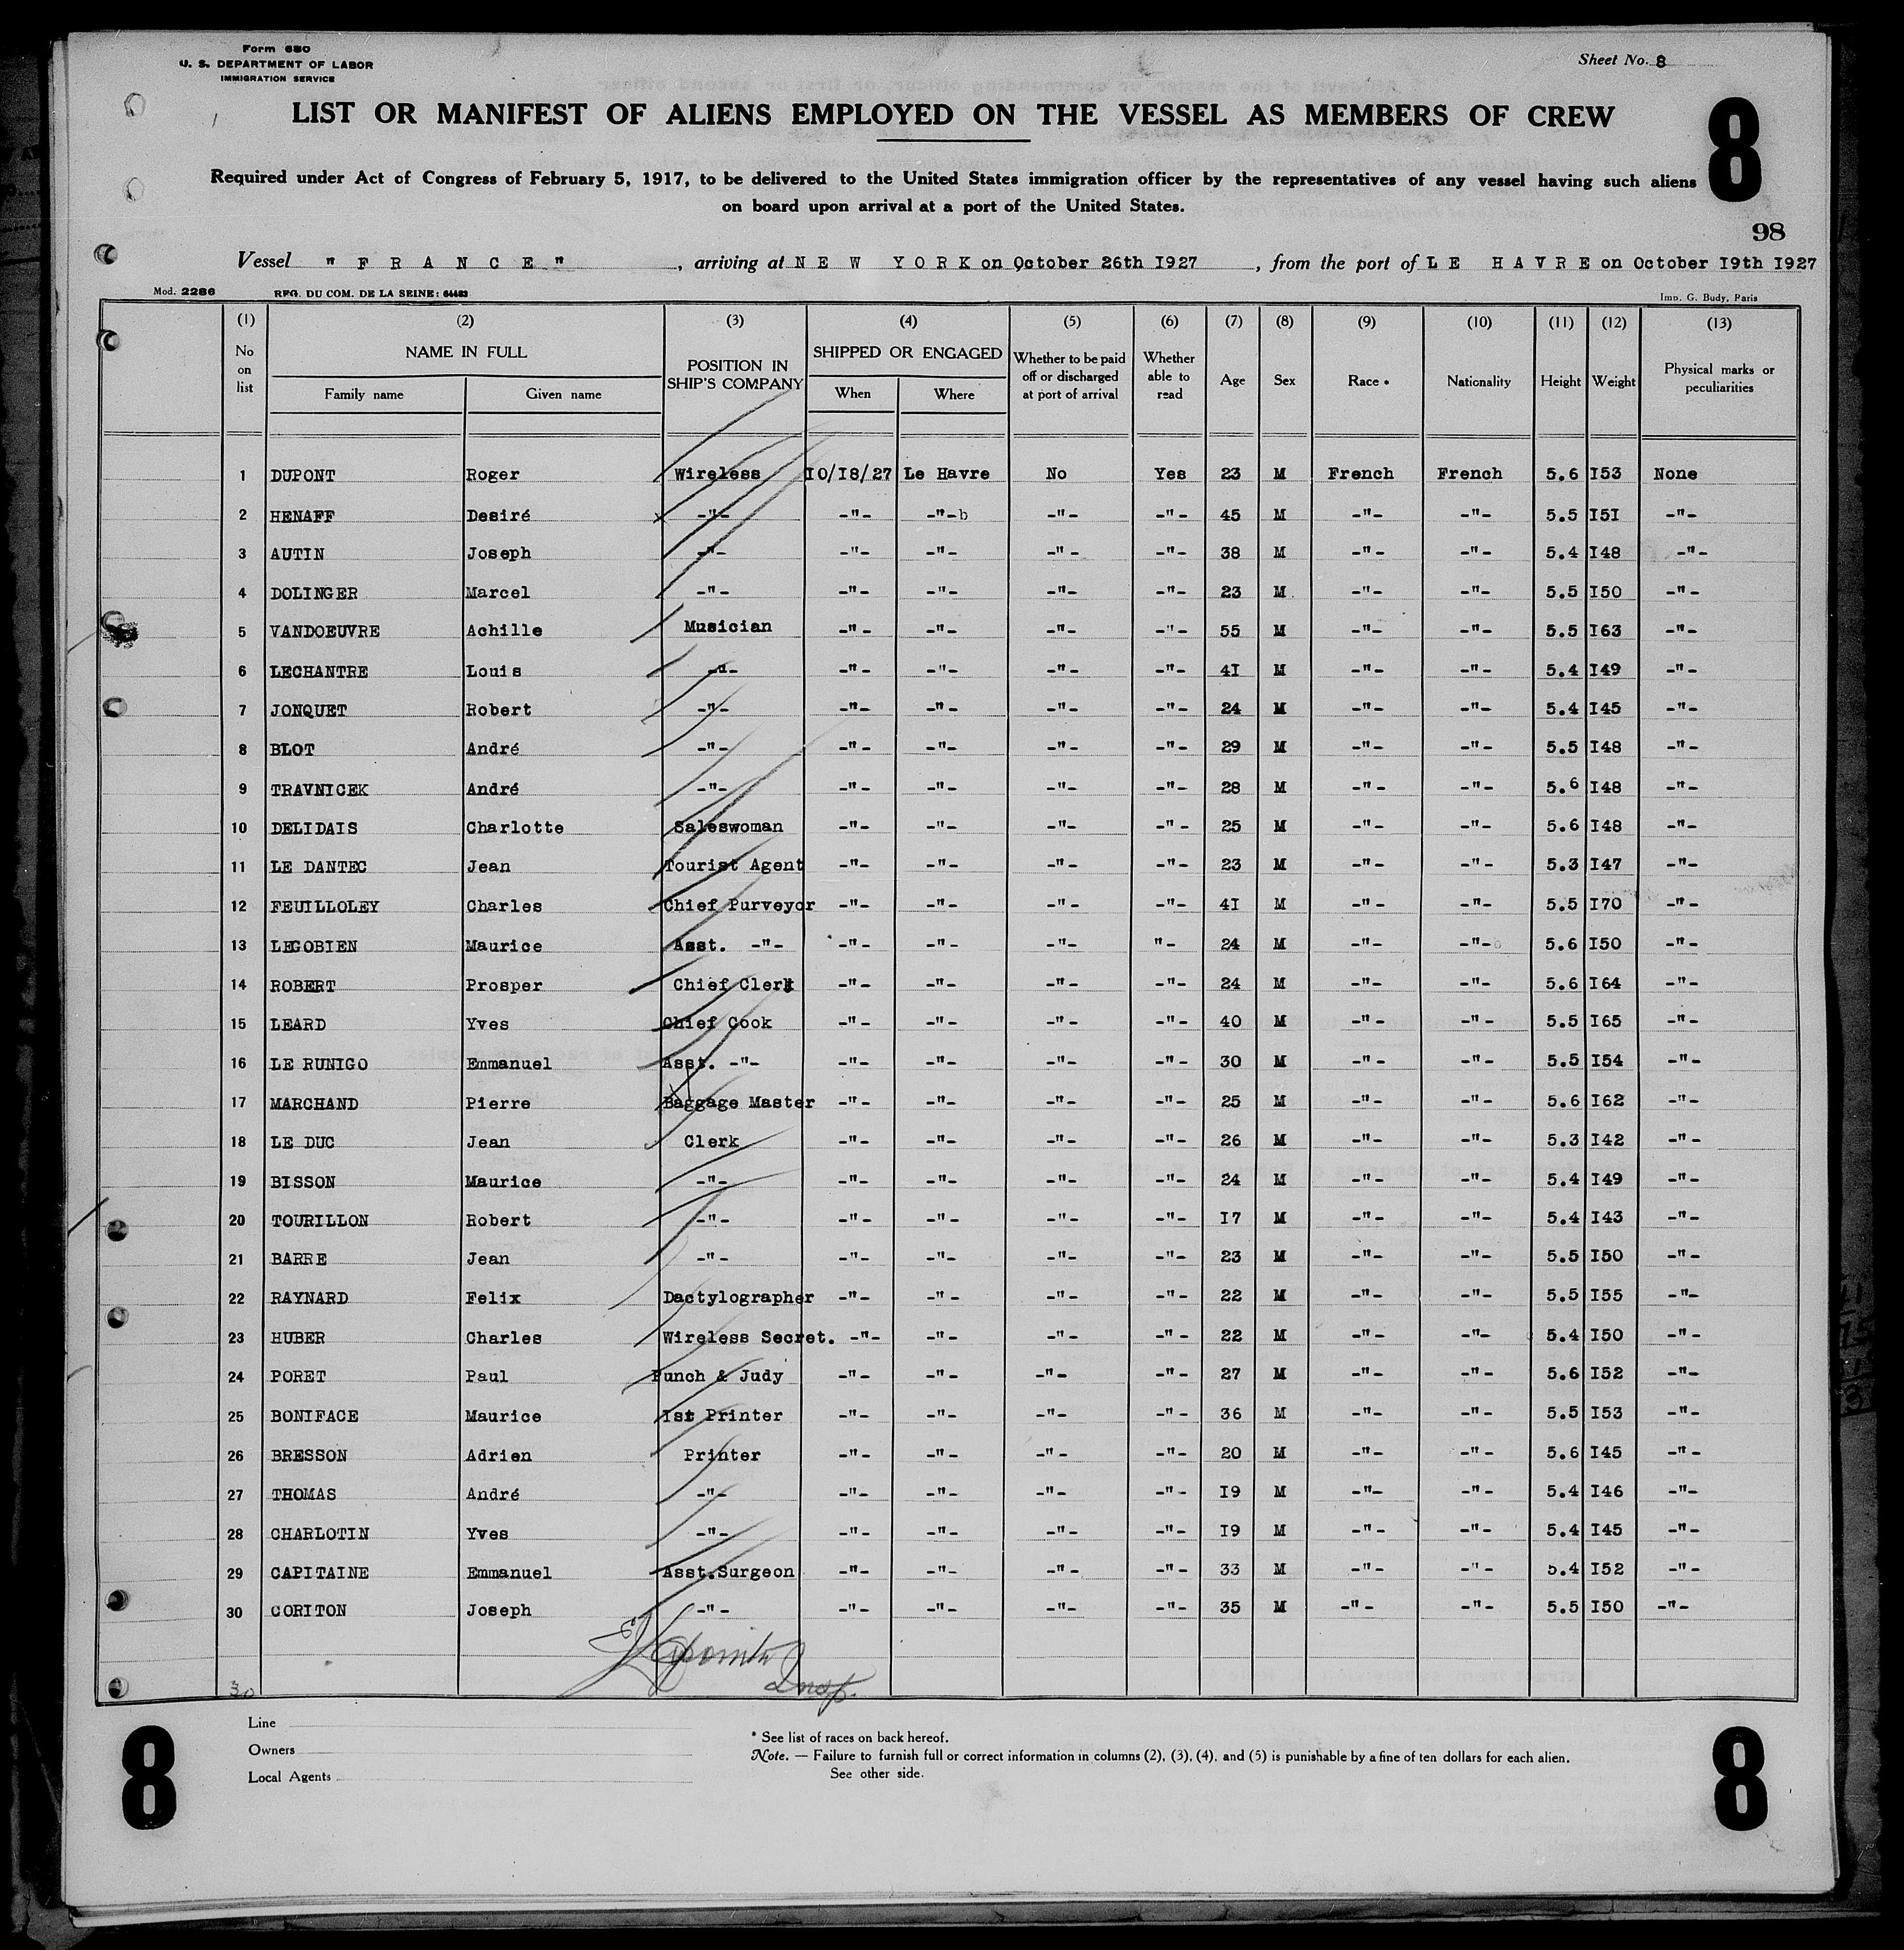 Form 680
U. S. DEPARTMENT OF LABOR
IMMIGRATION SERVICE
Sheet No. 8
LIST OR MANIFEST OF ALIENS EMPLOYED ON THE VESSEL AS MEMBERS OF CREW
8
Required under Act of Congress of February 5, 1917, to be delivered to the United States immigration officer by the representatives of any vessel having such aliens
on board upon arrival at a port of the United States.
98
Vessel " F R A N C E " , arriving at N E W Y O R K on October 26th I927 , from the port of L E H A V R E on October I9th I927
Mod. 2286 REG. DU COM. DE LA SEINE: 64483 Imp. G. Budy, Paris
(1) (2) (3) (4) (5) (6) (7) (8) (9) (10) (11) (12) (13)
No on list NAME IN FULL POSITION IN SHIP'S COMPANY SHIPPED OR ENGAGED Whether to be paid off or discharged at port of arrival Whether able to read Age Sex Race * Nationality Height Weight Physical marks or peculiarities
Family name Given name When Where
1 DUPONT Roger Wireless I0/I8/27 Le Havre No Yes 23 M French French 5.6 I53 None
2 HENAFF Desiré -"- -"- -"-b -"- -"- 45 M -"- -"- 5.5 I5I -"-
3 AUTIN Joseph -"- -"- -"- -"- -"- 38 M -"- -"- 5.4 I48 -"-
4 DOLINGER Marcel -"- -"- -"- -"- -"- 23 M -"- -"- 5.5 I50 -"-
5 VANDOEUVRE Achille Musician -"- -"- -"- -"- 55 M -"- -"- 5.5 I63 -"-
6 LECHANTRE Louis -"- -"- -"- -"- -"- 4I M -"- -"- 5.4 I49 -"-
7 JONQUET Robert -"- -"- -"- -"- -"- 24 M -"- -"- 5.4 I45 -"-
8 BLOT André -"- -"- -"- -"- -"- 29 M -"- -"- 5.5 I48 -"-
9 TRAVNICEK André -"- -"- -"- -"- -"- 28 M -"- -"- 5.6 I48 -"-
10 DELIDAIS Charlotte Saleswoman -"- -"- -"- -"- 25 M -"- -"- 5.6 I48 -"-
11 LE DANTEC Jean Tourist Agent -"- -"- -"- -"- 23 M -"- -"- 5.3 I47 -"-
12 FEUILLOLEY Charles Chief Purveyor -"- -"- -"- -"- 4I M -"- -"- 5.5 I70 -"-
13 LEGOBIEN Maurice Asst. -"- -"- -"- -"- "- 24 M -"- -"- 5.6 I50 -"-
14 ROBERT Prosper Chief Clerk -"- -"- -"- -"- 24 M -"- -"- 5.6 I64 -"-
15 LEARD Yves Chief Cook -"- -"- -"- -"- 40 M -"- -"- 5.5 I65 -"-
16 LE RUNIGO Emmanuel Asst. -"- -"- -"- -"- -"- 30 M -"- -"- 5.5 I54 -"-
17 MARCHAND Pierre Baggage Master -"- -"- -"- -"- 25 M -"- -"- 5.6 I62 -"-
18 LE DUC Jean Clerk -"- -"- -"- -"- 26 M -"- -"- 5.3 I42 -"-
19 BISSON Maurice -"- -"- -"- -"- -"- 24 M -"- -"- 5.4 I49 -"-
20 TOURILLON Robert -"- -"- -"- -"- -"- I7 M -"- -"- 5.4 I43 -"-
21 BARRE Jean -"- -"- -"- -"- -"- 23 M -"- -"- 5.5 I50 -"-
22 RAYNARD Felix Dactylographer -"- -"- -"- -"- 22 M -"- -"- 5.5 I55 -"-
23 HUBER Charles Wireless Secret. -"- -"- -"- -"- 22 M -"- -"- 5.4 I50 -"-
24 PORET Paul Punch & Judy -"- -"- -"- -"- 27 M -"- -"- 5.6 I52 -"-
25 BONIFACE Maurice Ist Printer -"- -"- -"- -"- 36 M -"- -"- 5.5 I53 -"-
26 BRESSON Adrien Printer -"- -"- -"- -"- 20 M -"- -"- 5.6 I45 -"-
27 THOMAS André -"- -"- -"- -"- -"- I9 M -"- -"- 5.4 I46 -"-
28 CHARLOTIN Yves -"- -"- -"- -"- -"- I9 M -"- -"- 5.4 I45 -"-
29 CAPITAINE Emmanuel Asst.Surgeon -"- -"- -"- -"- 33 M -"- -"- 5.4 I52 -"-
30 CORITON Joseph -"- -"- -"- -"- -"- 35 M -"- -"- 5.5 I50 -"-
Insp.
30
8
Line
Owners
Local Agents
* See list of races on back hereof.
Note. — Failure to furnish full or correct information in columns (2), (3), (4), and (5) is punishable by a fine of ten dollars for each alien.
See other side.
8